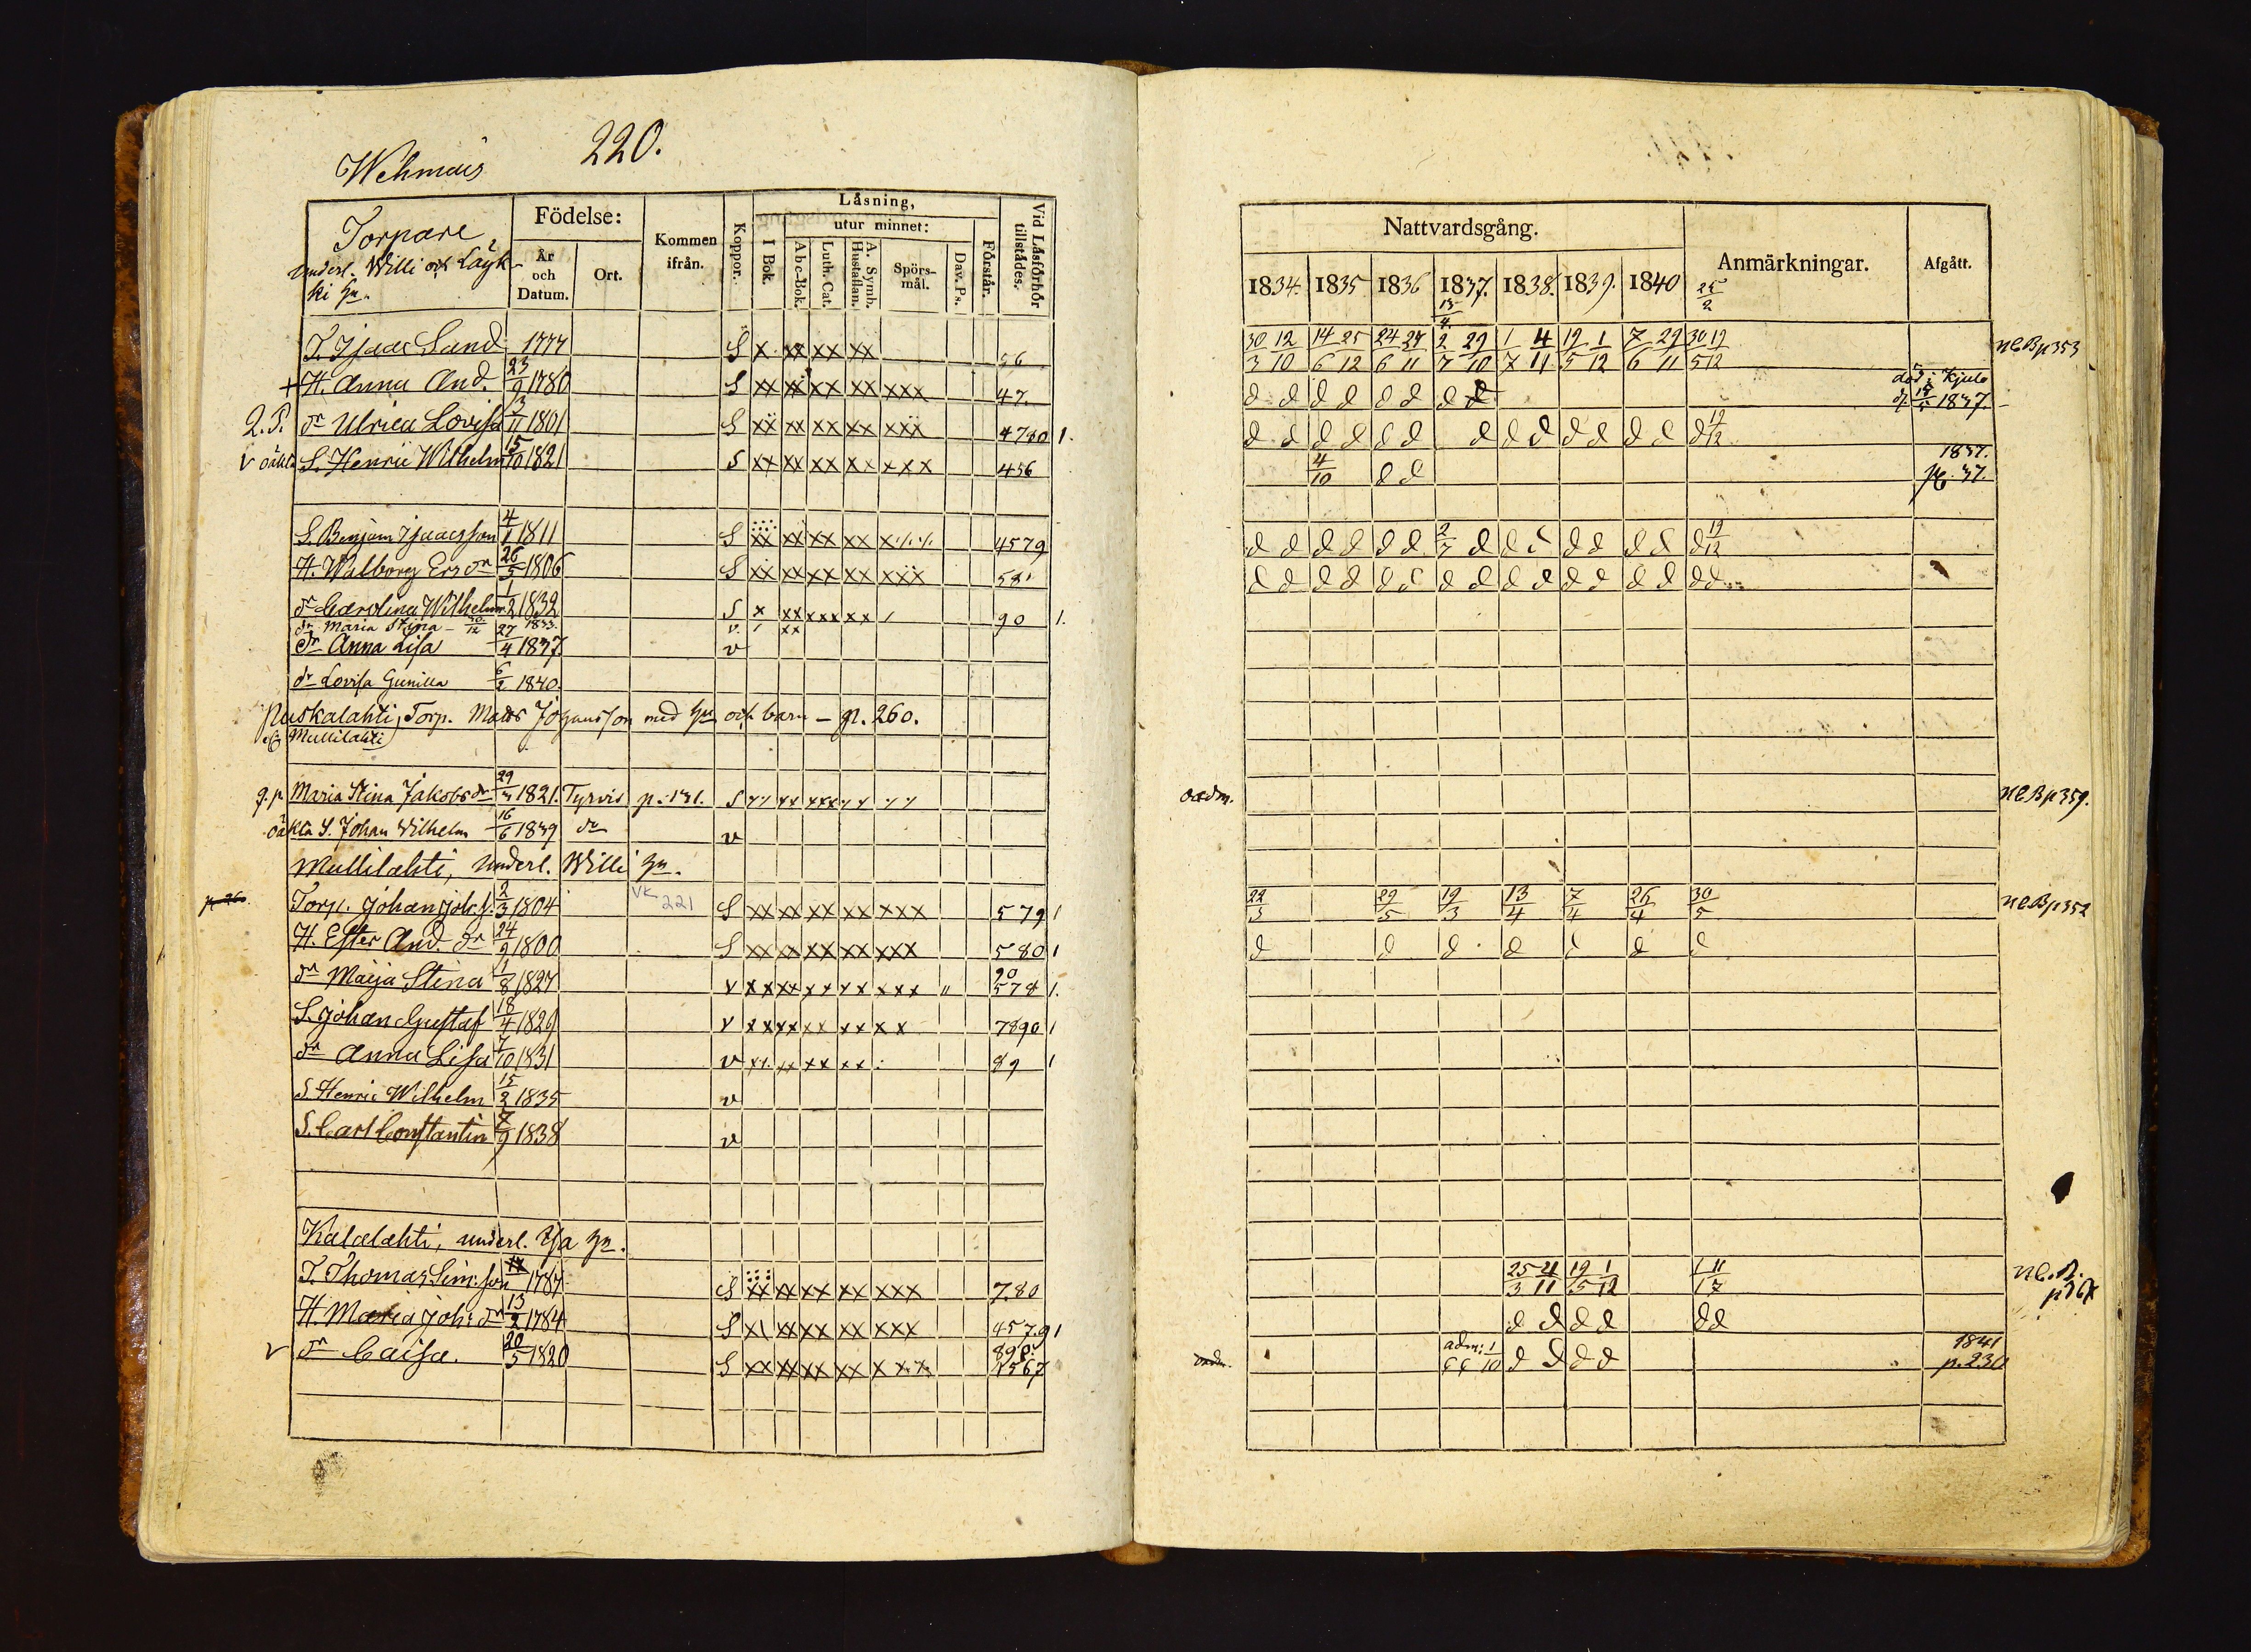 220.
Wehmais
Torpare
underl. Willi och Läyk-
ki hn.
Födelse:
År och Datum.
Ort.
Kommen ifrån.
Koppor.
Läsning,
I Bok.
utur minnet:
Abc-Bok.
Luth. Cat.
A. Symb. Hustaflan.
Spörs-mål.
Dav. Ps.
Förstår.
Vid Läsförhör tillstådes.
T. Isaac Sand 1777 S x xx xx xx 56
+ H. Anna And. 23/9 1780 S xx xx xx xx xxx 47.
Q.P. dr Ulrica Lovisa 13/11 1801 S xx xx xx xx xxx 4780 1.
v oäkta S. Henric Wilhelm 15/10 1821 S xx xx xx xx xxx 456
S. Benjam Isaacsson 4/1 1811 S xx xx xx xx 4579
H. Walborg Ers dr 26/5 1806 S xx xx xx xx xxx 581
dr Carolina Wilhelm 1/2 1832 S x xx xx xx / 90 1.
dr Maria Stina 30/12 1833. v. / xx
dr Anna Lisa 27/4 1837 v
dr Lovisa Gunilla 6/2 1840.
Puskalahti, Torp. Matts Johansson med hu och barn – p. 260.
Mullilahti
g.p Maria Stina Jakobs dr 29/3 1821. Tyrvis p. 131. S
oäkta S. Johan Wilhelm 16/6 1839 dr v
Mullilahti, underl. Willi hn.
p 26. Torp. Johan Joh. s. 2/3 1804 VK 221 S xx xx xx xx xxx 579 1
H. Ester And. dr 24/9 1800 S xx xx xx xx xxx 580 1
dr Maija Stina 1/8 1827 v xx xx xx xx xxx " 90 578 1.
S. Johan Gustaf 18/4 1829 v xx xx xx xx xx 7890 1
dr Anna Lisa 7/10 1831 v xx xx xx xx 89 1
S. Henric Wilhelm 15/2 1835 v
S. Carl Constantin 7/9 1838 v
Kalalahti, underl. Isa hn.
T. Thomas Sim: son 1787 S xx xx xx xx xxx 780
H. Maria Joh: dr 13/2 1784 S xx xx xx xxx 4579 1
v dr Caisa. 20/5 1820 S xx xx xx xx xxx 890. 4567
Nattvardsgång.
Anmärkningar.
Afgått.
1834. 1835 1836 1837. 1838. 1839. 1840
15/4 25/2
30/3 12/10 14/6 25/12 24/6 27/11 2/7 29/10 1/7 4/11 19/5 1/12 7/6 29/11 30/5 19/12 NCB p 353
d d d d d d d d död i Kjulo d. 18/5 1837.
d d d d d d d d d d d d d d 19/12
4/10 d d 1837. p. 37.
d d d d d d 2/7 d d d d d d d d 19/12
d d d d d d d d d d d d d d d d
oadm. NCB p 359.
22/3 29/5 19/3 13/4 7/4 26/4 30/5 NCB p 352
d d d d d d d
25/3 4/11 19/5 1/12 NC.B. p 367
d d d d d d
oadm. adm: 1/10 d d d d 1841 p. 230